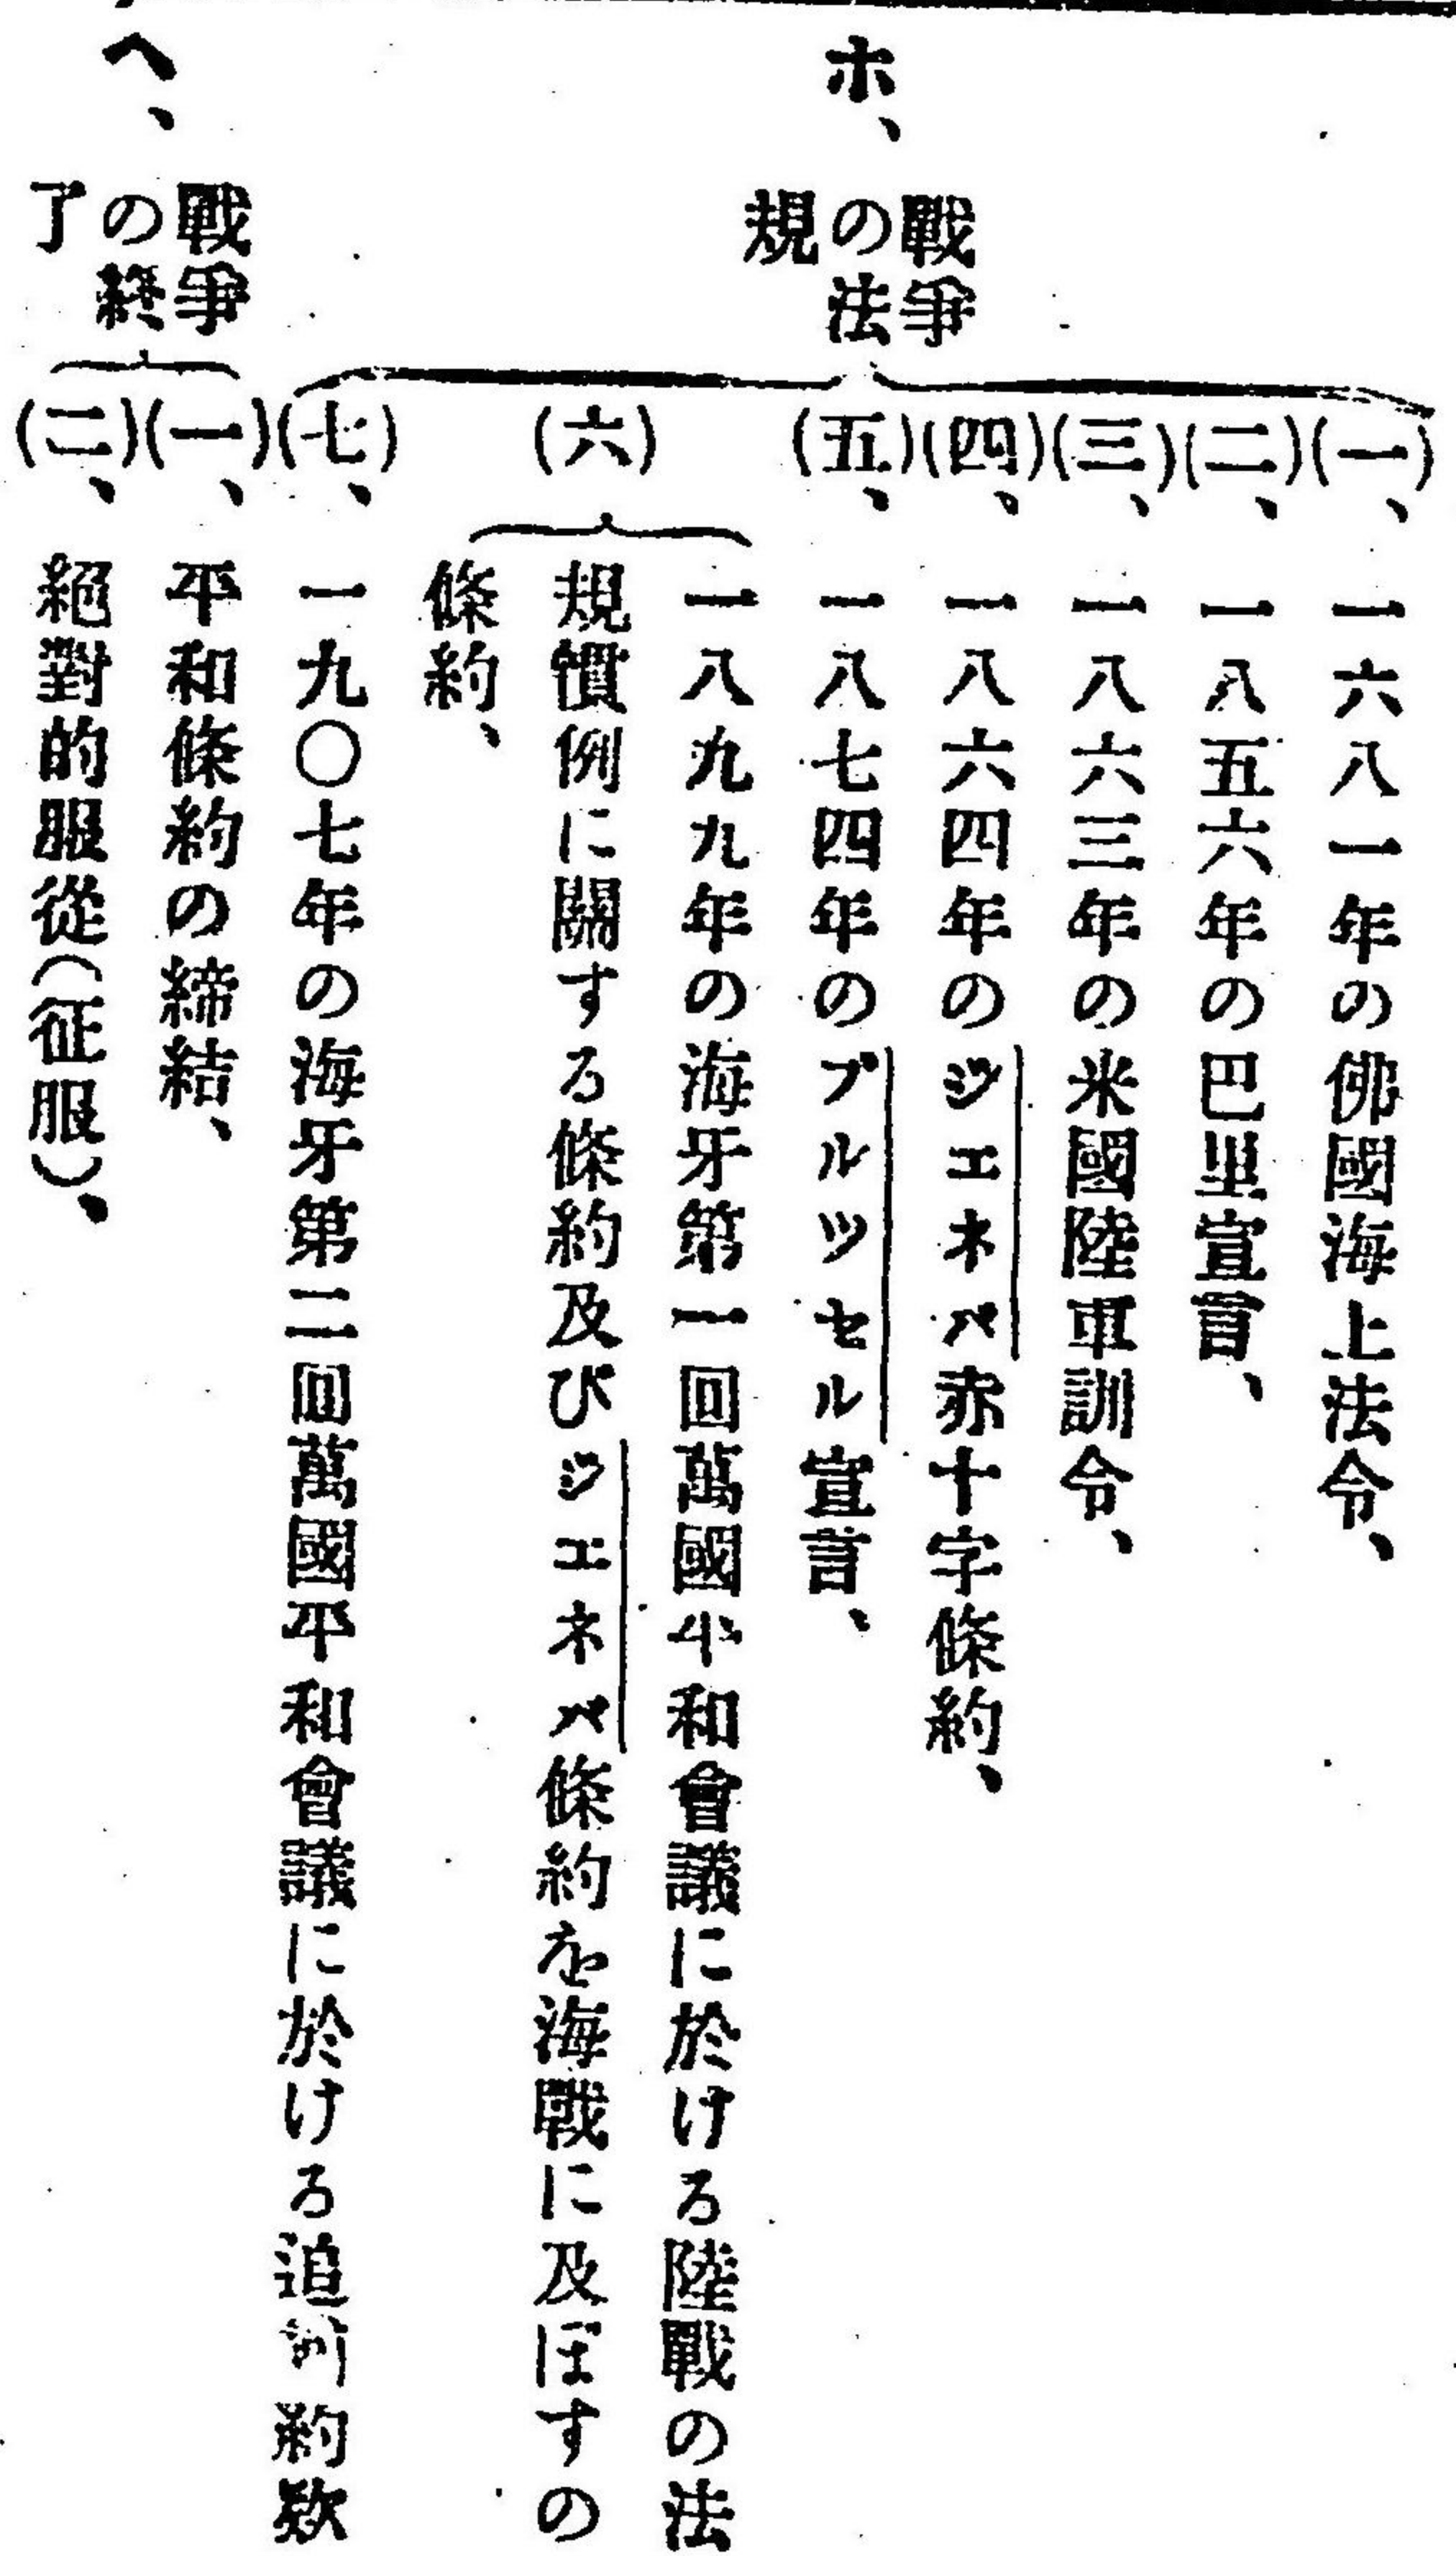 ホ、
戰爭
の法
規
(一、)一六八一年の佛國海上法令、
(二、)一八五六年の巴里宣言、
(三、)一八六三年の米國陸軍訓令、
(四、)一八六四年のジエネバ赤十字條約、
(五、)一八七四年のブルツセル宣言、
(六)一八九九年の海牙第一回萬國平和會議に於ける陸戰の法
規慣例に關する條約及びジエネバ條約を海戰に及ぼすの
條約、
(七、)一九〇七年の海牙第二回萬國平和會議に於ける追約款
ヘ、
戰爭
の終
了
(一、)平和條約の締結、
(二、)絕對的服從(征服)、